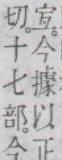 。今據以正
切。十七部。今